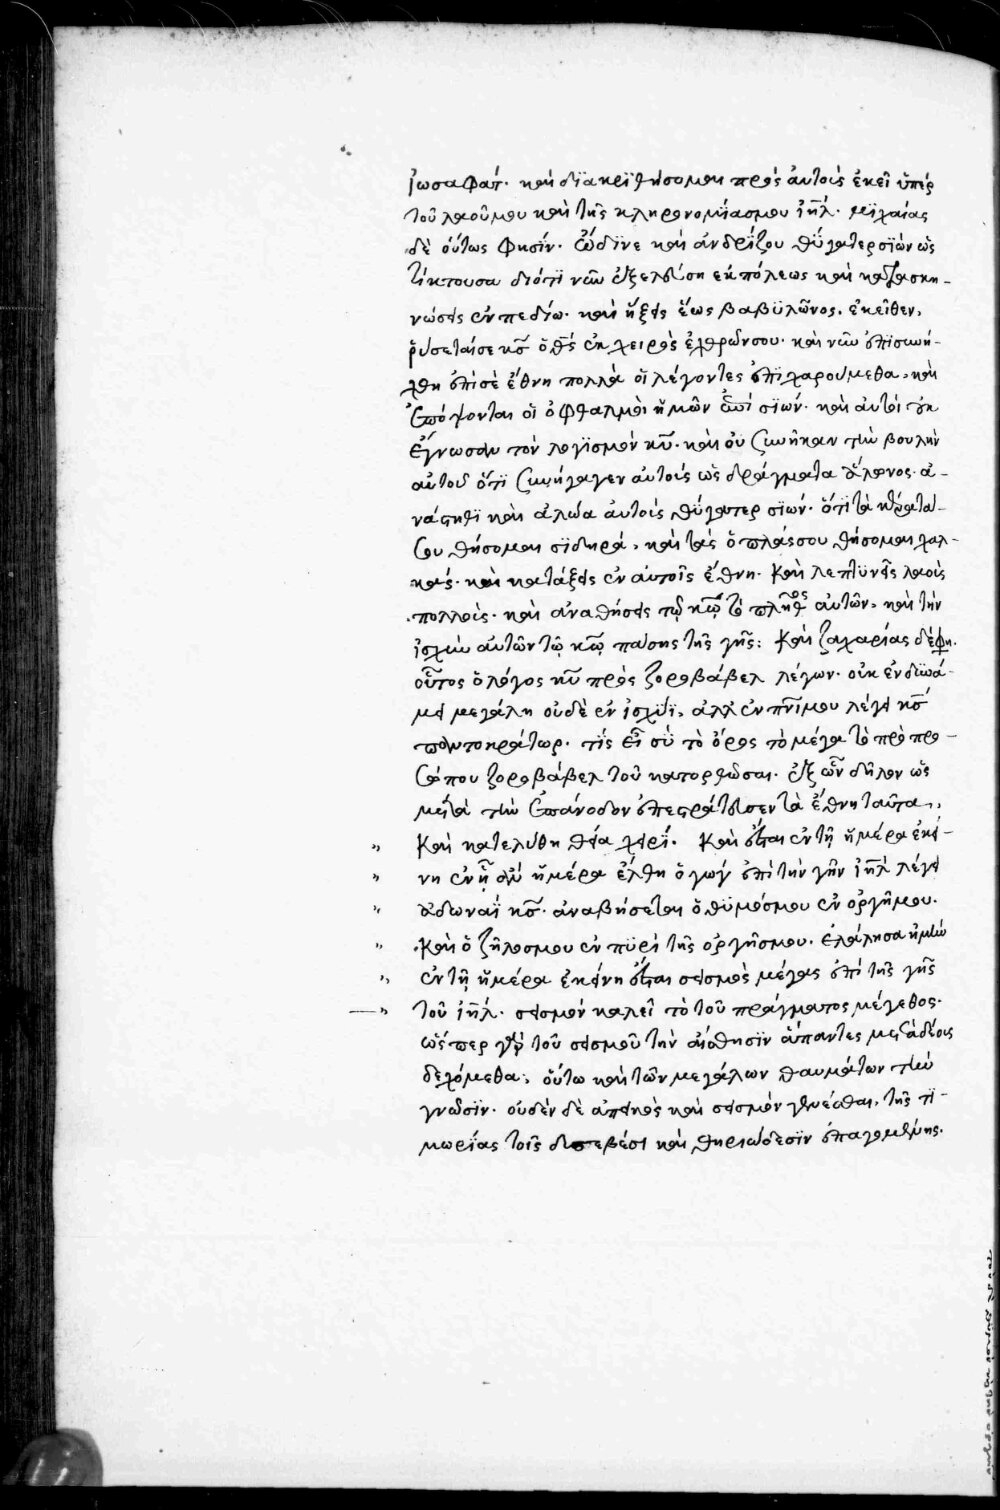 ἰωσαφάτ. καὶ διακριθήσομαι πρὸς αὐτοὺς ἐκεῖ ὑπὲρ
τοῦ λαοῦ μου καὶ τῆς κληρονομίας μου ἰη̅λ. μιχαίας
δὲ οὕτως φησίν. ὤδινε καὶ ἀνδρίζου θύγατερ σιὼν ὡς
τίκτουσα διότι νῦν ἐξελεύση ἐκ πόλεως καὶ κατασκη-
νώσεις ἐν πεδίω. καὶ ἥξεις ἕως βαβυλῶνος. ἐκεῖθεν
ῥύσεταί σε κ̅ς ὁ θ̅ς ἐκ χειρὸς ἐχθρῶν σου. καὶ νῦν ἐπισυνή-
χθη ἐπὶ σὲ ἔθνη πολλὰ οἱ λέγοντες ἐπιχαρούμεθα, καὶ
ἐπόψονται οἱ ὀφθαλμοὶ ἡμῶν ἐπὶ σιών. καὶ αὐτοὶ οὐκ
ἔγνωσαν τὸν λογισμὸν κ̅υ. καὶ οὐ συνῆκαν τὴν βουλὴν
αὐτοῦ ὅτι συνήγαγεν αὐτοὺς ὡς δράγματα ἅλωνος. ἀ-
νάστηθι καὶ ἀλόα αὐτοὺς θύγατερ σιών. ὅτι τὰ κέρατά
σου θήσομαι σιδηρᾶ, καὶ τὰς ὁπλάς σου θήσομαι χαλ-
κάς. καὶ κατάξεις ἐν αὐτοῖς ἔθνη. Καὶ λεπτυνεῖς λαοὺς
πολλούς. καὶ ἀναθήσεις τῷ κ̅ω τὸ πλῆθος αὐτῶν, καὶ τὴν
ἰσχὺν αὐτῶν τῷ κ̅ω πάσης τῆς γῆς: Καὶ ζαχαρίας δέ φη.
οὗτος ὁ λόγος κ̅υ πρὸς ζοροβάβελ λέγων. οὐκ ἐν δυνά-
μει μεγάλη οὐδὲ ἐν ἰσχύϊ, ἀλλ' ἐν πν̅ι μου λέγει κ̅ς
παντοκράτωρ. τίς εἶ σὺ τὸ ὄρος τὸ μέγα τὸ πρὸ προ-
σώπου ζοροβάβελ τοῦ κατορθῶσαι. ἐξ ὧν δῆλον ὡς
μετὰ τὴν ἐπάνοδον ἐπεστράτευσεν τὰ ἔθνη ταῦτα,
Καὶ κατελύθη θεία χειρί. Καὶ ἔσται ἐν τῇ ἡμέρα ἐκεί-
νη ἐν ᾗ ἂν ἡμέρα ἔλθη ὁ γὼγ ἐπὶ τὴν γῆν ἰη̅λ λέγει
ἀδωναῒ κ̅ς. ἀναβήσεται ὁ θυμός μου ἐν ὀργῇ μου.
Καὶ ὁ ζῆλος μου ἐν πυρὶ τῆς ὀργῆς μου. ἐλάλησα εἰ μὴν
ἐν τῇ ἡμέρα ἐκείνη ἔσται σεισμὸς μέγας ἐπὶ τῆς γῆς
τοῦ ἰη̅λ. σεισμὸν καλεῖ τὸ τοῦ πράγματος μέγεθος.
ὥσπερ γὰρ τοῦ σεισμοῦ τὴν αἴσθησιν ἅπαντες μετὰ δέους
δεχόμεθα, οὕτω καὶ τῶν μεγάλων θαυμάτων τὴν
γνῶσιν. οὐδὲν δὲ ἀπεικὸς καὶ σεισμὸν γενέσθαι, τῆς τι-
μωρίας τοῖς δυσσεβέσι καὶ θηριώδεσιν ἐπαγομένης.